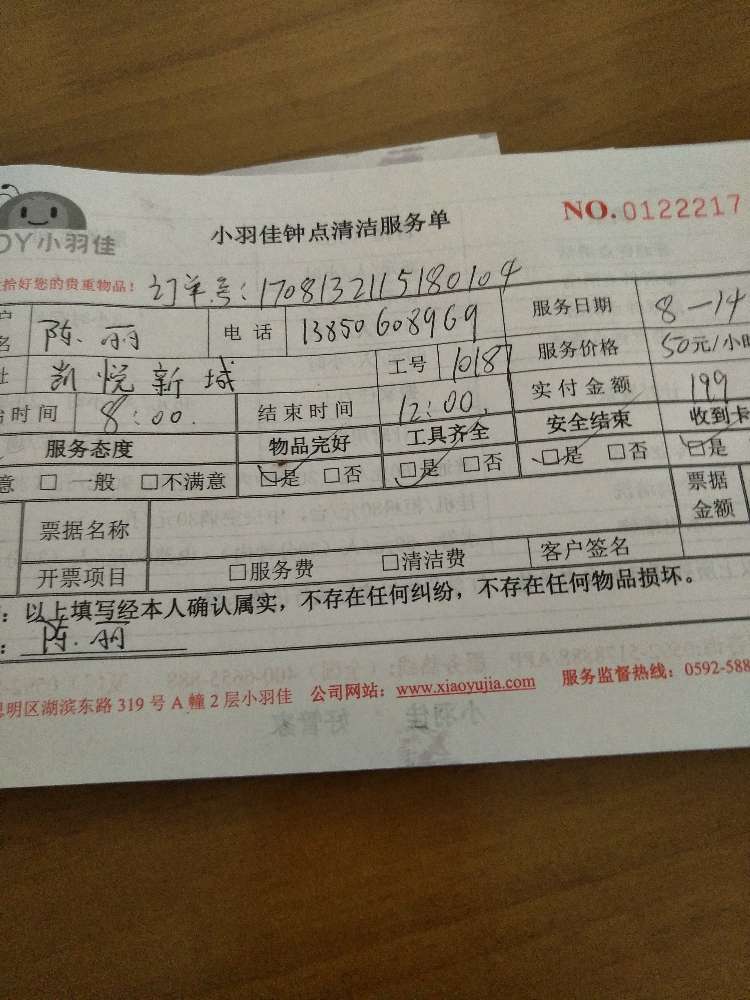 小羽佳钟点清洁服务单
NO.0122217
OY小羽佳
拾好您的贵重物品! 订单号:1708132115180104
名 陈丽 电话 13850608969 服务日期 8-14
址 凯悦新城 工号 10187 服务价格 50元/小时
始时间 8:00 结束时间 12:00 实付金额 199
服务态度 物品完好 工具齐全 安全结束 收到卡
意 □一般 □不满意 □是 □否 □是 □否 □是 □否 □是
票据名称 票据金额
开票项目 □服务费 □清洁费 客户签名
:以上填写经本人确认属实,不存在任何纠纷,不存在任何物品损坏。
: 陈丽
思明区湖滨东路319号A幢2层小羽佳 公司网站:www.xiaoyujia.com 服务监督热线:0592-588